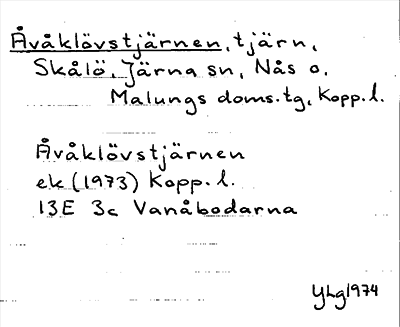 Åvåklövstjärnen, tjärn,
Skålö, Järna sn, Nås o.
Malungs doms.tg, Kopp.l.
Åvåklövstjärnen
ek (1973) Kopp.l.
13E 3c Vanåbodarna
YLg 1974